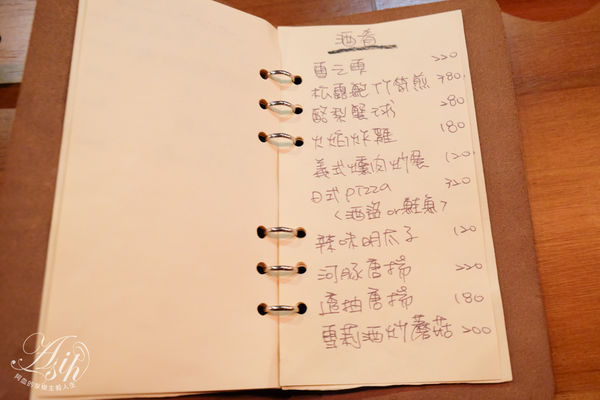 酒肴
雪之頁 220
松露起竹筍煎 380
酪梨蟹球 280
火焰炸雞 180
義式燻肉炒 120
日式pizza 320
(酒盜or鮭魚)
辣味明太子 120
河豚唐揚 220
透抽唐揚 180
雪莉酒炒蘑菇 200
Asih